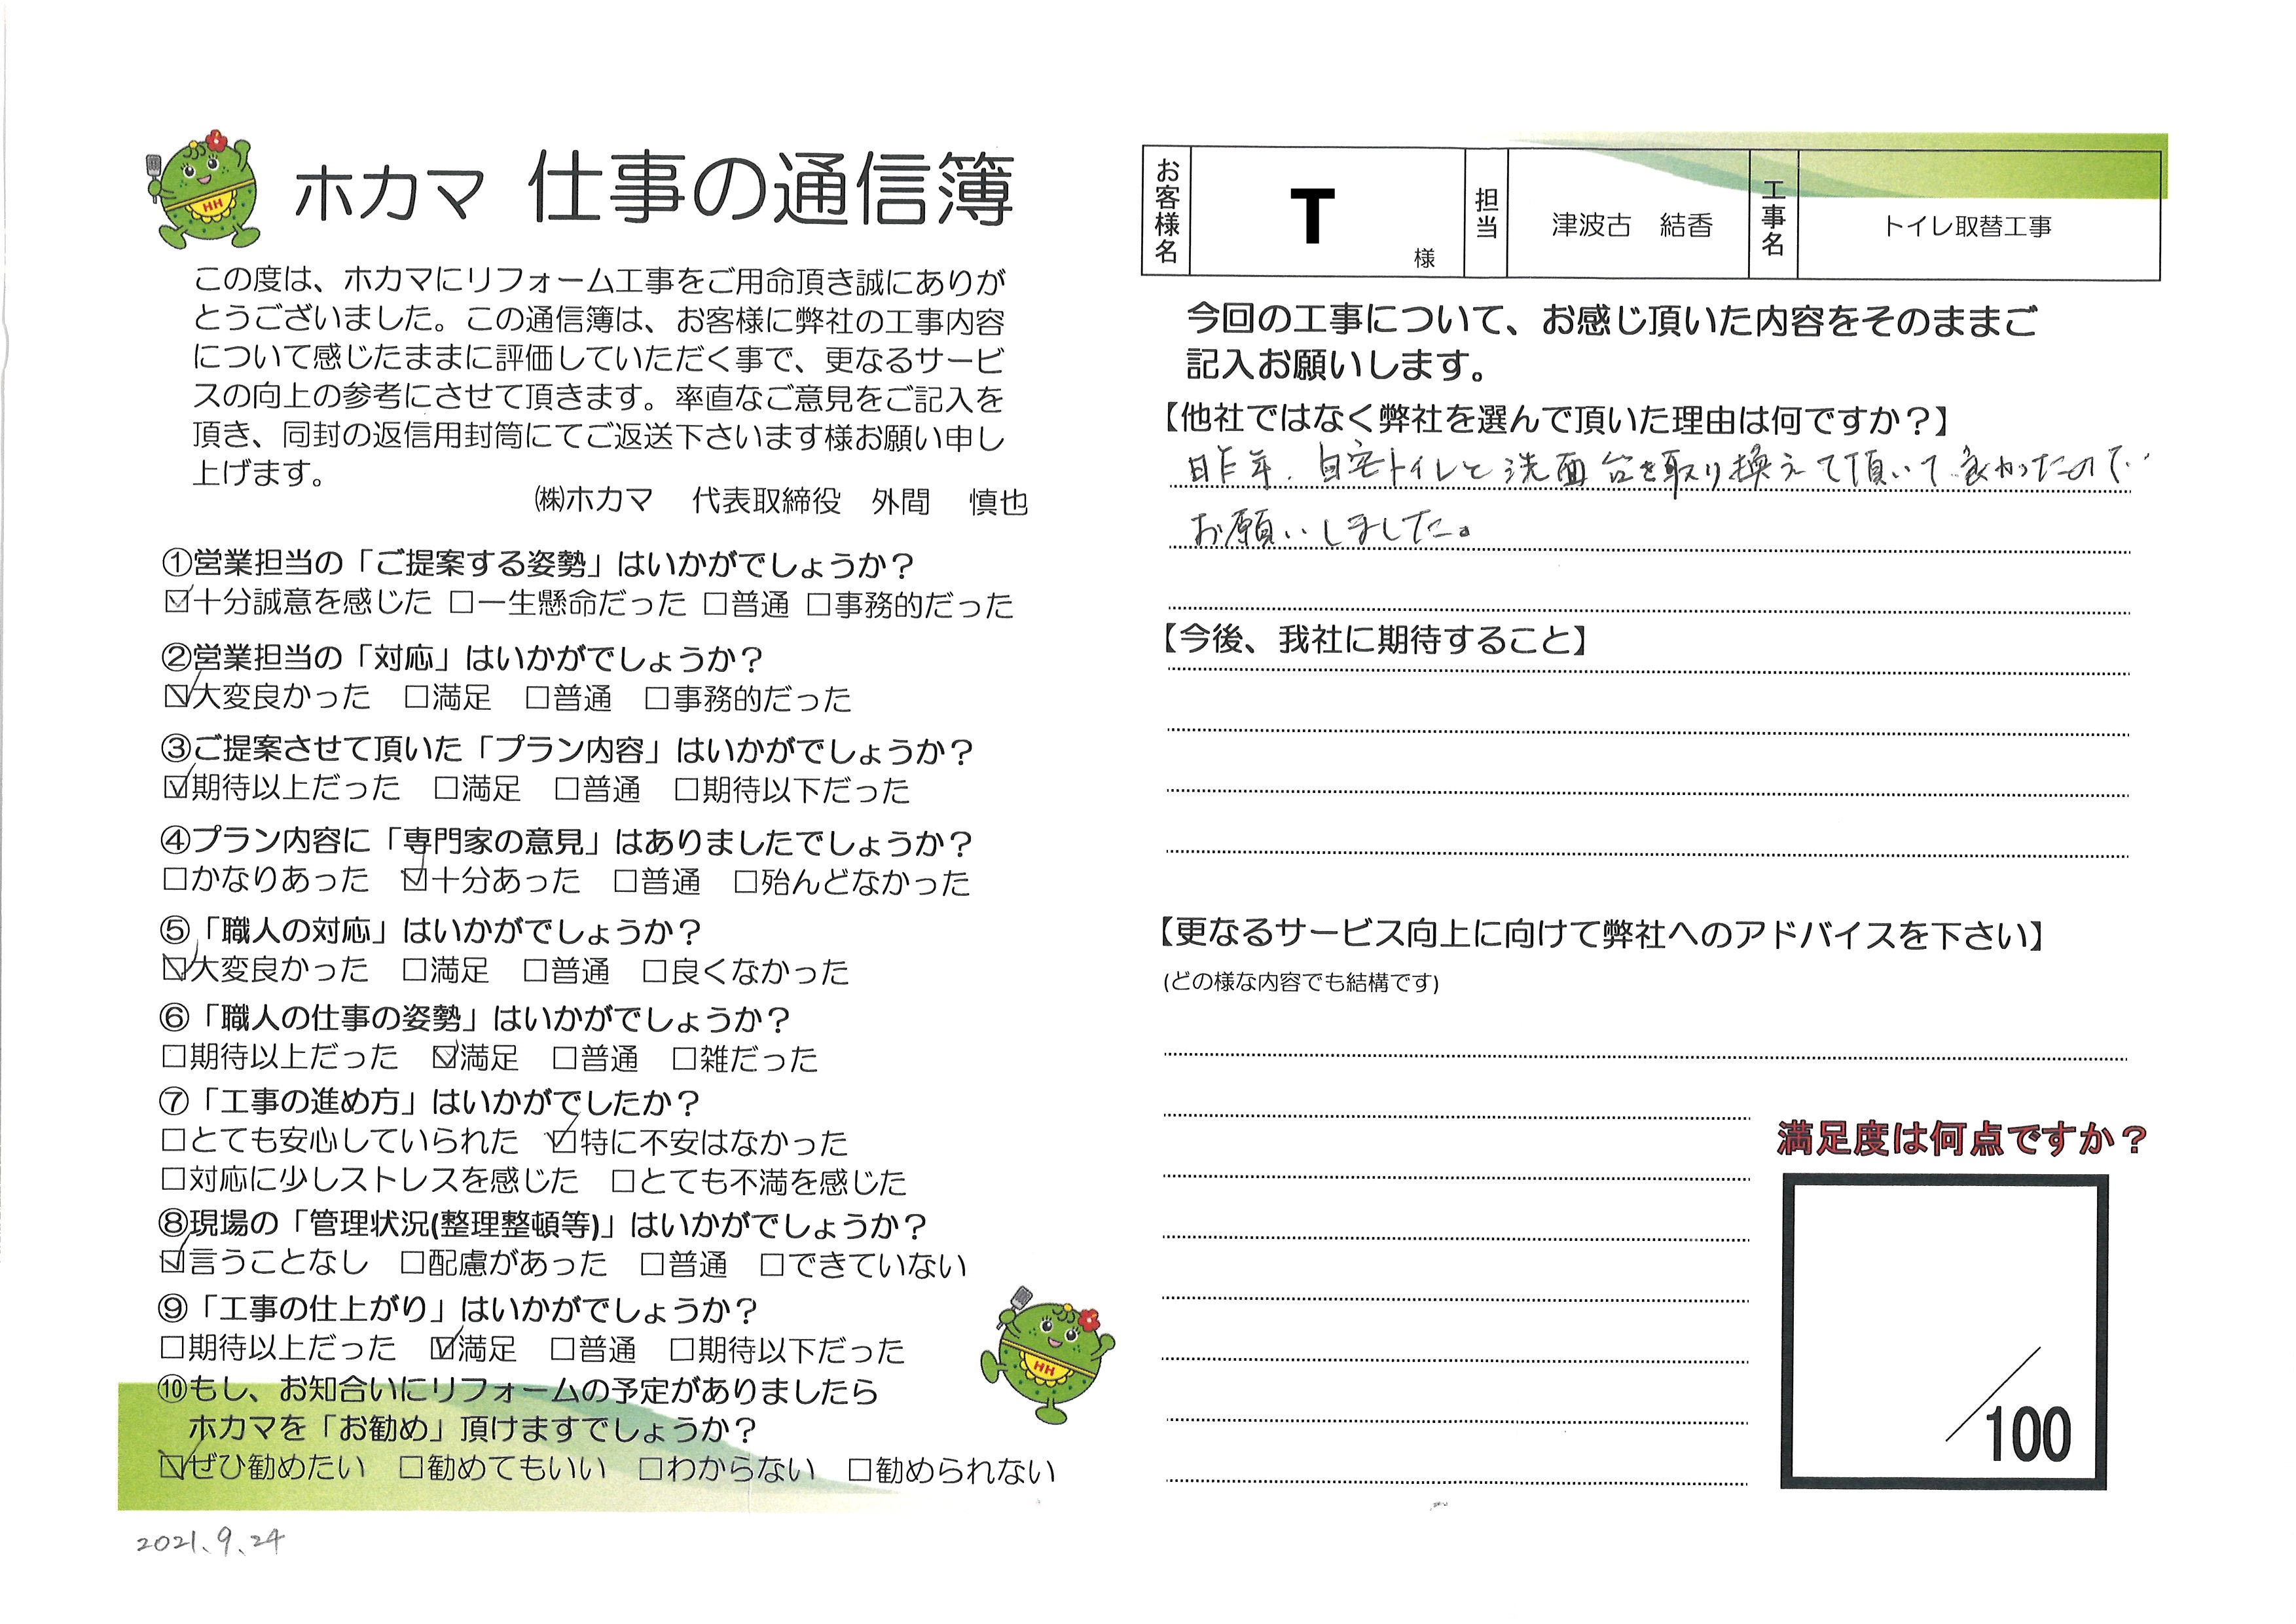 ホカマ 仕事の通信簿
この度は、ホカマにリフォーム工事をご用命頂き誠にありが
とうございました。この通信簿は、お客様に弊社の工事内容
について感じたままに評価していただく事で、更なるサービ
スの向上の参考にさせて頂きます。率直なご意見をご記入を
頂き、同封の返信用封筒にてご返送下さいます様お願い申し
上げます。
㈱ホカマ 代表取締役 外間 慎也
①営業担当の「ご提案する姿勢」はいかがでしょうか？
☑十分誠意を感じた □一生懸命だった □普通 □事務的だった
②営業担当の「対応」はいかがでしょうか？
☑大変良かった □満足 □普通 □事務的だった
③ご提案させて頂いた「プラン内容」はいかがでしょうか？
☑期待以上だった □満足 □普通 □期待以下だった
④プラン内容に「専門家の意見」はありましたでしょうか？
□かなりあった ☑十分あった □普通 □殆んどなかった
⑤「職人の対応」はいかがでしょうか？
☑大変良かった □満足 □普通 □良くなかった
⑥「職人の仕事の姿勢」はいかがでしょうか？
□期待以上だった ☑満足 □普通 □雑だった
⑦「工事の進め方」はいかがでしたか？
□とても安心していられた ☑特に不安はなかった
□対応に少しストレスを感じた □とても不満を感じた
⑧現場の「管理状況(整理整頓等)」はいかがでしょうか？
☑言うことなし □配慮があった □普通 □できていない
⑨「工事の仕上がり」はいかがでしょうか？
□期待以上だった ☑満足 □普通 □期待以下だった
⑩もし、お知合いにリフォームの予定がありましたら
ホカマを「お勧め」頂けますでしょうか？
☑ぜひ勧めたい □勧めてもいい □わからない □勧められない
2021.9.24
お客様名 T 様 担当 津波古 結香 工事名 トイレ取替工事
今回の工事について、お感じ頂いた内容をそのままご
記入お願いします。
【他社ではなく弊社を選んで頂いた理由は何ですか？】
昨年、自宅トイレと洗面台を取り換えて頂いて良かったので
お願いしました。
【今後、我社に期待すること】
【更なるサービス向上に向けて弊社へのアドバイスを下さい】
(どの様な内容でも結構です)
満足度は何点ですか？
/100
HH
HH